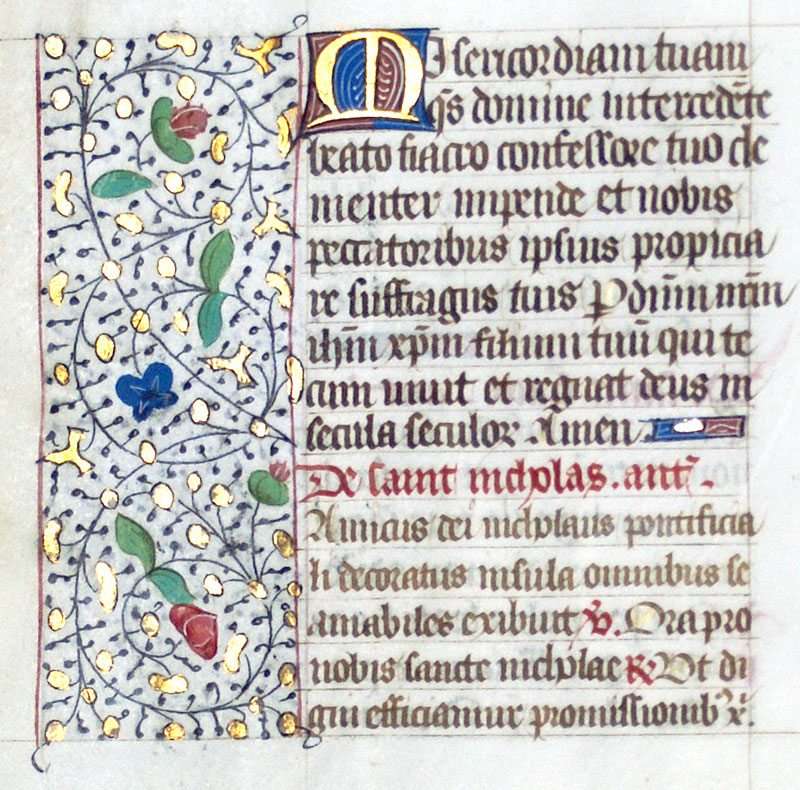 Misericordiam tuam
qs̄ domine intercedēte
beato fiacro confessore tuo cle
menter impende et nobis
peccatoribus ipsius propicia
re suffragiis tuis P dn̄m nrm̄
ihm̄ xpm̄ filium tuū qui te
cum viuit et regnat deus in
secula seculor Amen
De saint nicholas. ant.
Amicus dei nicholaus pontificia
li decoratus insula omnibus se
amabiles exibuit ℣. Ora pro
nobis sancte nicholae ℟ Vt di
gni efficiamur promissionib' x̄.